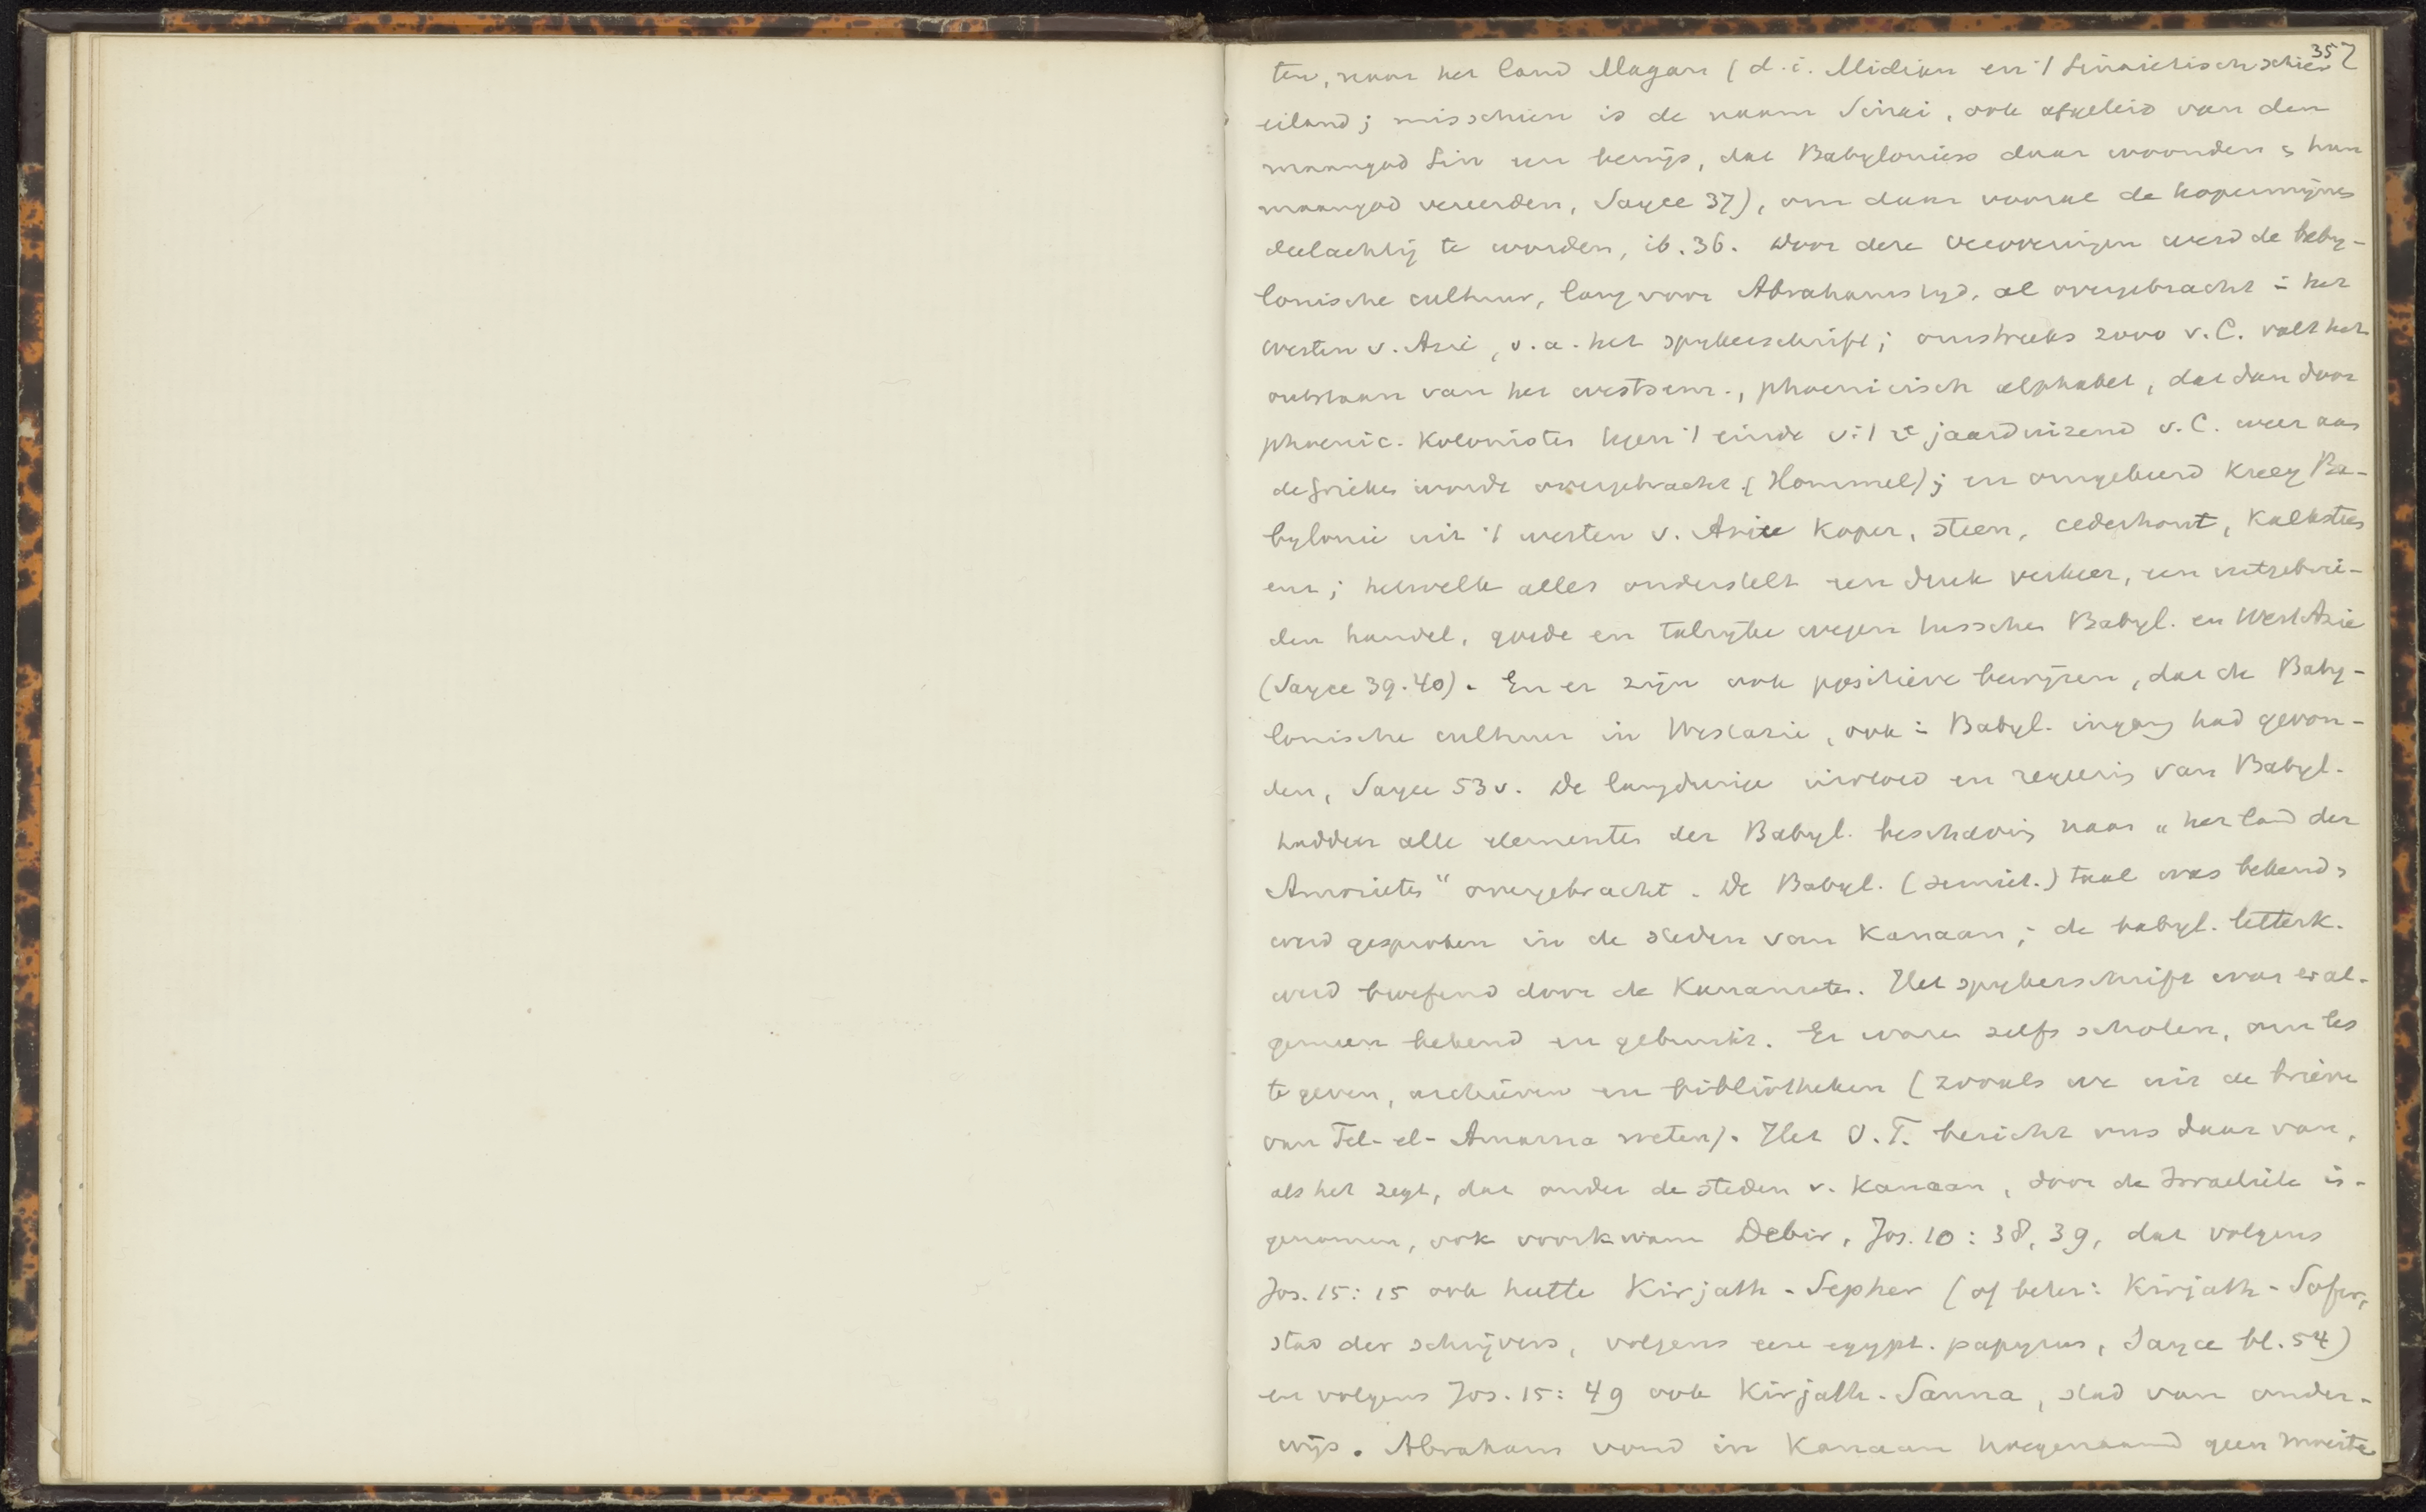 357
ten, naar het land Magan (d.i. Midian en 't Sinaietisch schier
eiland; misschien is de naam Sinai, ook afgeleid van den
maangod Sin een bewijs, dat Babyloniers daar woonden & hun
maangod vereerden, Sayce 37), om daar vooral de kopermijnen
deelachtig te worden, ib. 36. Door deze veroveringen werd de baby-
lonische cultuur, lang voor Abrahams tyd, al overgebracht in het
westen v. Azie, o.a. het spykerschrift; omstreeks 2000 v.C. valt het
ontstaan van het westsem., phoenicisch alphabet, dat dan door
phoenic. kolonisten tegen 't einde v. 't 2e jaarduizend v.C. weer aan
de Grieken wordt overgebracht (Hommel); en omgekeerd kreeg Ba-
bylonie uit 't westen v. Azie koper, steen, cederhout, kalksteen
enz; hetwelk alles onderstelt een druk verkeer, een uitgebrei-
den handel, goede en talryke wegen tusschen Babyl. en West Azie
(Sayce 39.40). En er zijn ook positieve bewijzen, dat de Baby-
lonische cultuur in Westazie, ook in Babyl. ingang had gevon-
den, Sayce 53v. De langdurige invloed en regeering van Babyl.
hadden alle elementen der Babyl. beschaving naar "het land der
Amorieten" overgebracht. De Babyl. (semiet.) taal was bekend &
werd gesproken in de steden van Kanaan; de babyl. letterk.
werd beoefend door de Kanaanieten. Het spykerschrift was er al-
gemeen bekend en gebruikt. Er waren zelfs scholen, om les
te geven, archieven en bibliotheken (zooals we uit de brieven
van Tel-el-Amarna weten). Het O.T. bericht ons daar van,
als het zegt, dat onder de steden v. Kanaan, door de Israelieten in-
genomen, ook voorkwam Debir, Joz. 10:38,39, dat volgens
Joz. 15:15 ook heette Kirjath-Sepher (of beter: Kirjath-Sofer,
stad der schrijvers, volgens eene egypt. papyrus, Sayce bl. 54)
en volgens Joz. 15:49 ook Kirjath-Sanna, stad van onder-
wijs. Abraham vond in Kanaan toegenaamd geen moeite